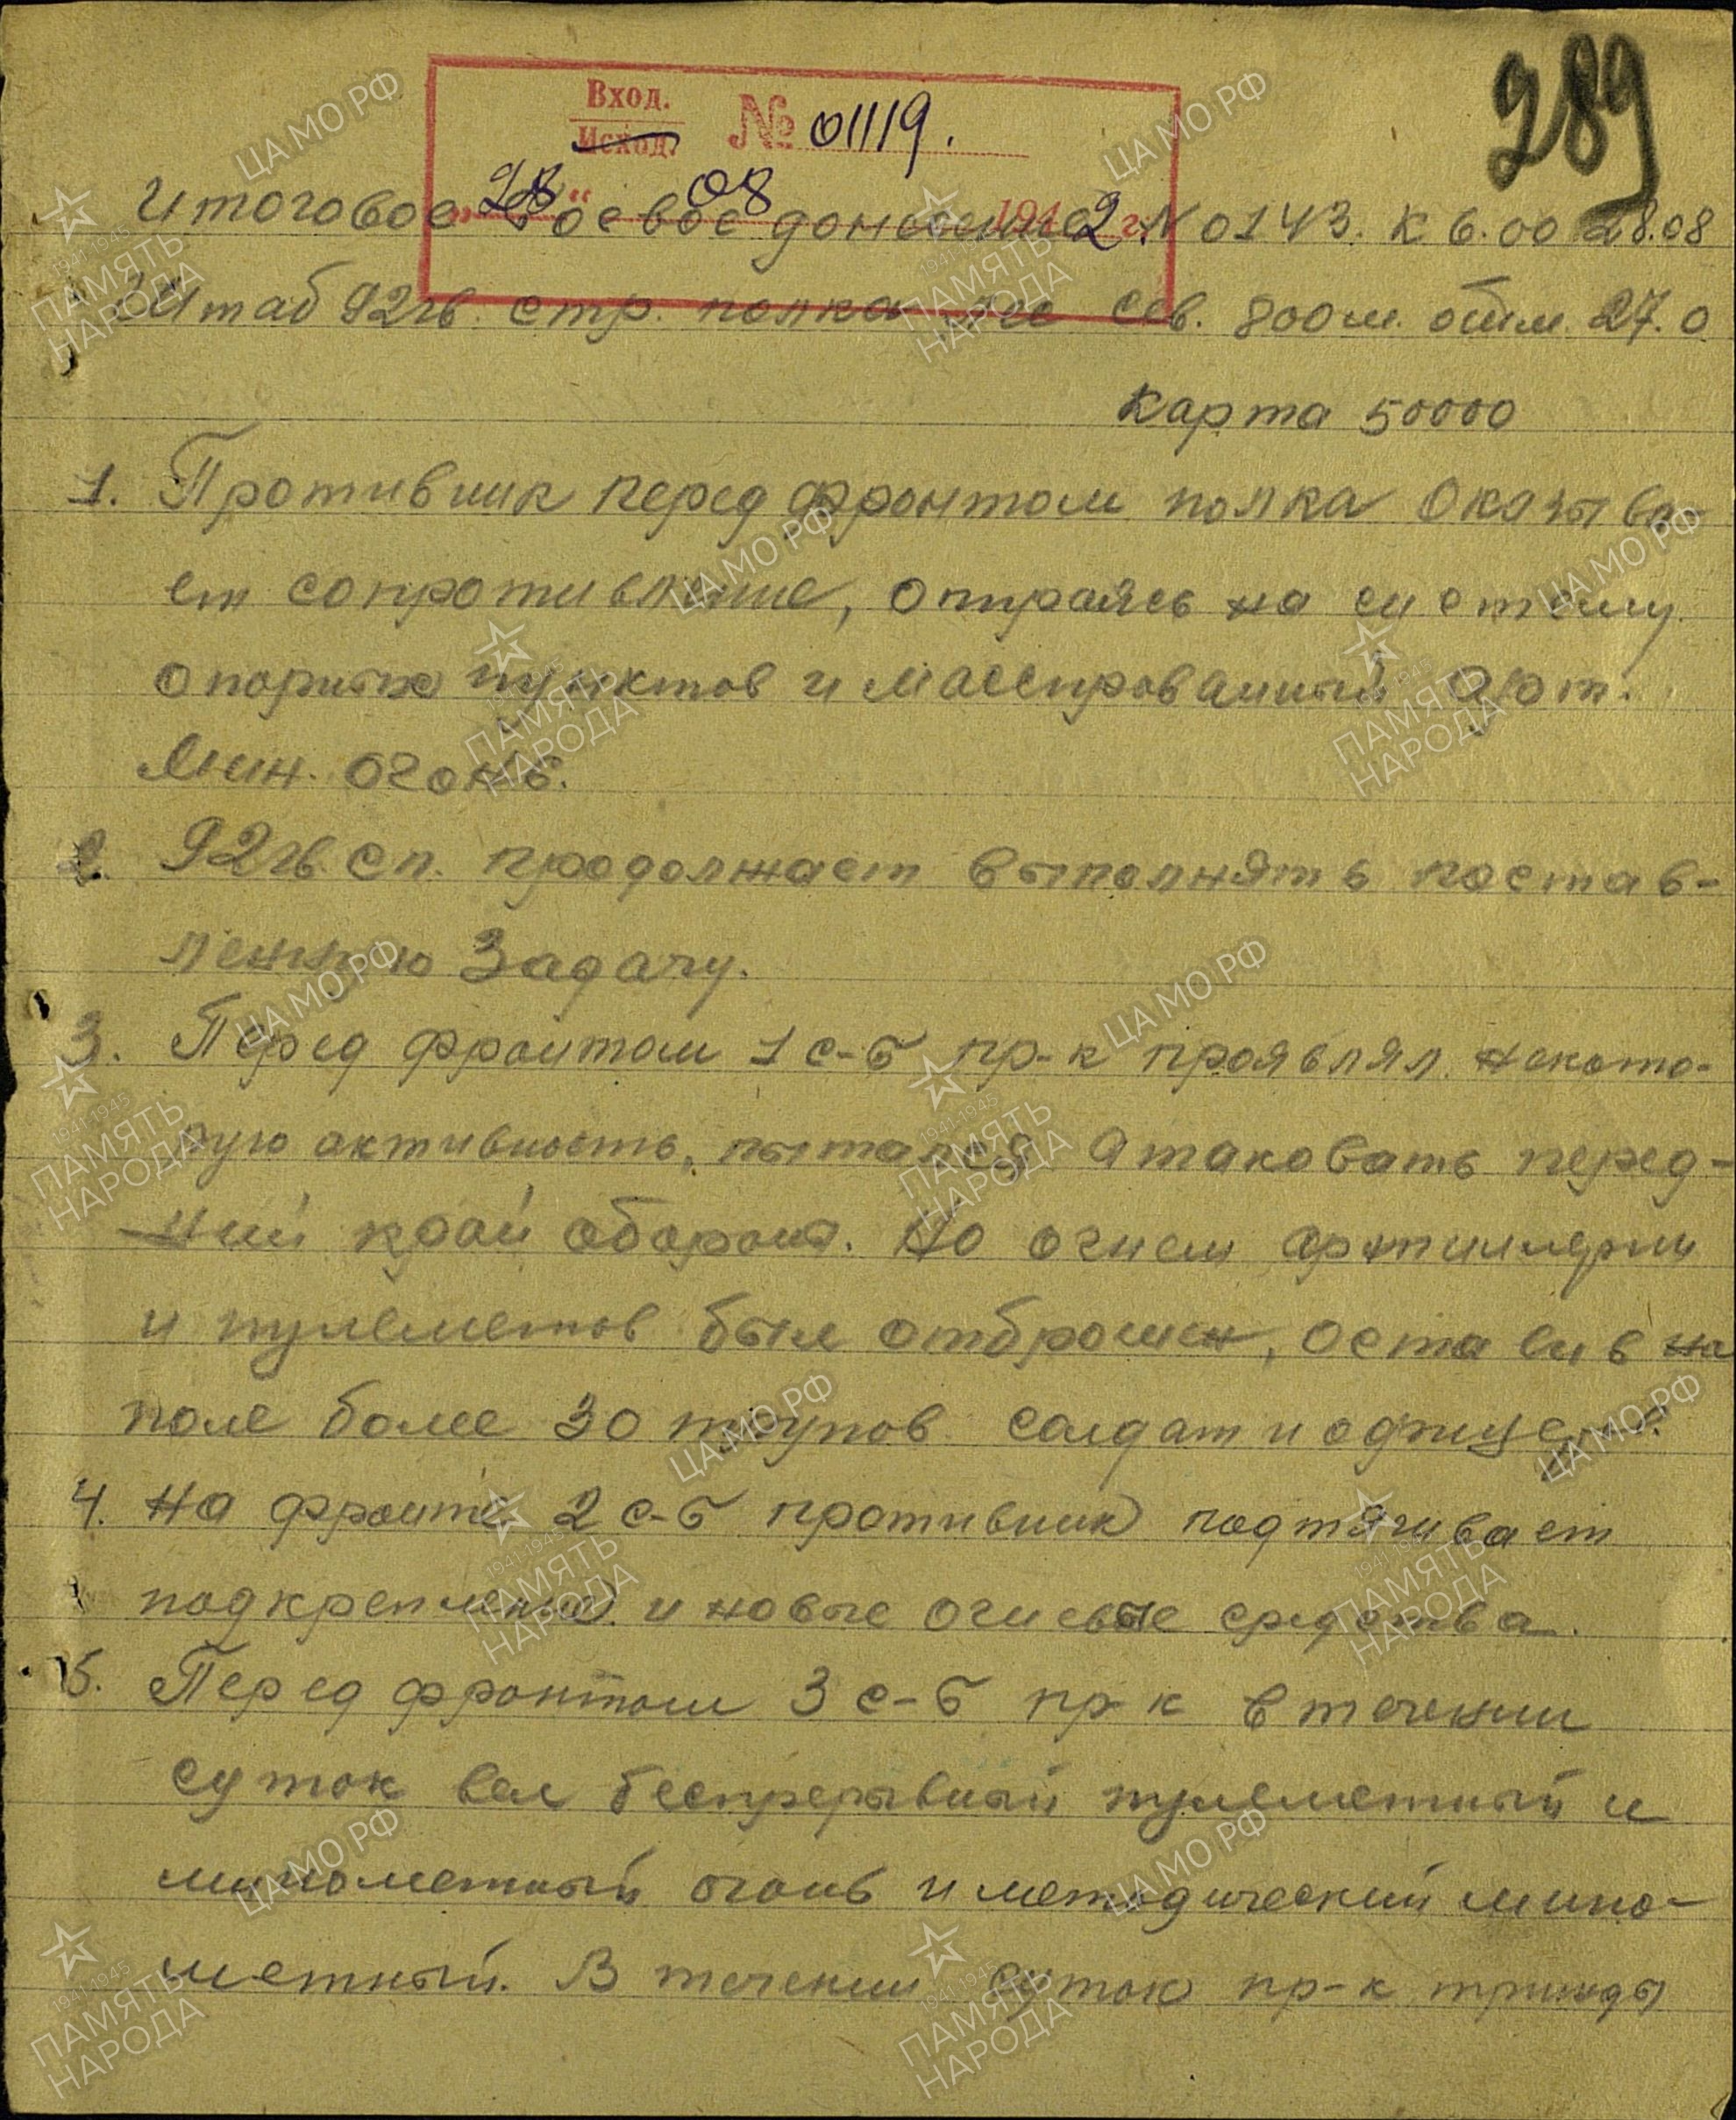 289
Вход.
Исход. № 01119.
"28" 08 1942 г.
Итоговое боевое донесение № 0143. К 6.00 28.08
Штаб 92гв. стр. полка сев. 800м. отм. 27.0
Карта 50000
1. Противник перед фронтом полка оказыва-
ет сопротивление, опираясь на систему
опорных пунктов и массированный арт.
мин. огонь.
2. 92гв. сп. продолжает выполнять постав-
ленную задачу.
3. Перед фронтом 1 с-б пр-к проявлял некото-
рую активность, пытался атаковать перед-
ний край обороны. Но огнем артиллерии
и пулеметов был отброшен, оставив на
поле более 30 трупов солдат и офицеров.
4. На фронте 2 с-б противник подтягивает
подкрепление и новые огневые средства.
5. Перед фронтом 3 с-б пр-к в течении
суток вел беспрерывный пулеметный и
минометный огонь и методический мино-
метный. В течении суток пр-к трижды
ЦАМО РФ
1941-1945
ПАМЯТЬ
НАРОДА